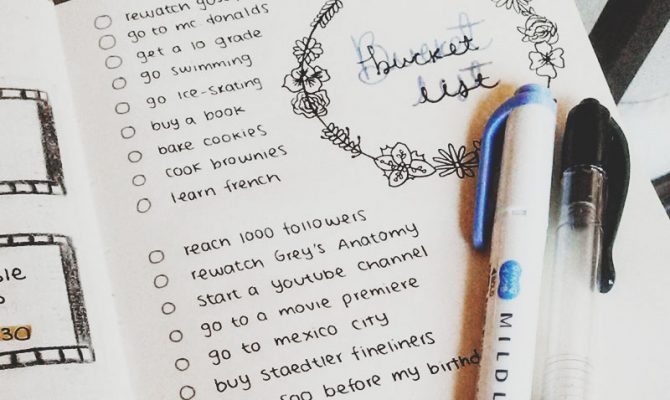 bucket
list
rewatch
go to mc donalds
get a 10 grade
go swimming
go ice-skating
buy a book
bake cookies
cook brownies
learn french
reach 1000 followers
rewatch Grey's Anatomy
start a youtube channel
go to a movie premiere
go to mexico city
buy staedtler fineliners
before my birthd
30
MILDL